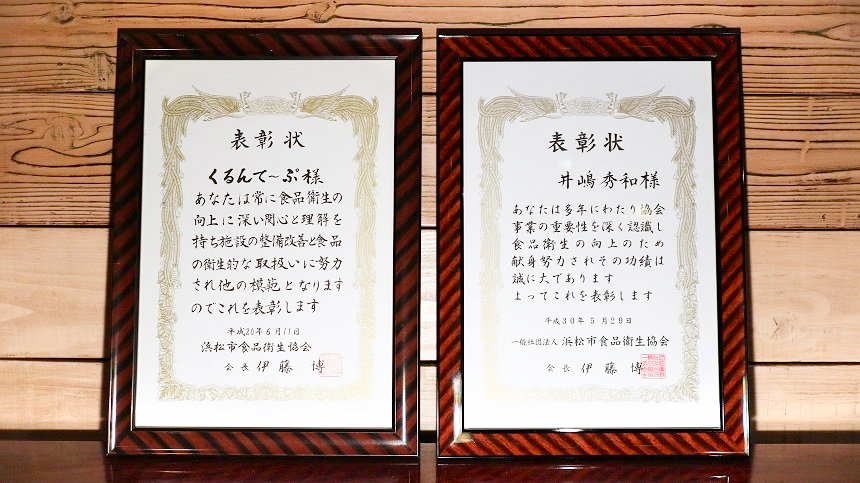 表彰状
くるんて~ぷ様
あなたは常に食品衛生の
向上に深い関心と理解を
持ち施設の整備改善と食品
の衛生的な取扱いに努力
され他の模範となります
のでこれを表彰します
平成20年6月11日
浜松市食品衛生協会
会長 伊藤 博
表彰状
井嶋秀和様
あなたは多年にわたり協会
事業の重要性を深く認識し
食品衛生の向上のため
献身努力されその功績は
誠に大であります
よってこれを表彰します
平成30年5月29日
一般社団法人 浜松市食品衛生協会
会長 伊藤 博